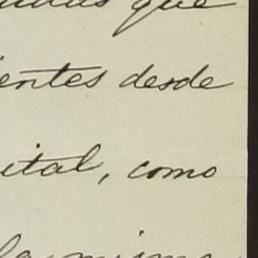 que
entes desde
ital, como
misma